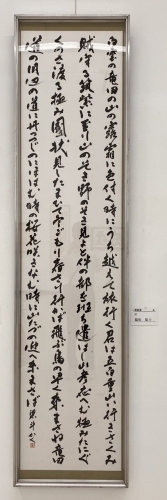 白雲の竜田の山の露霜に色付く時にうち越えて旅行く君は五百重山い行きさくみ
賊守る筑紫に至り山のそき野のそき見よと伴の部を班ち遣はし山彦の応へむ極みたにぐ
くのさ渡る極み國状を見したまひて冬ごもり春さり行かば飛ぶ鳥の早く来まさね竜田
道の岡辺の道に丹つつじのにほはむ時の桜花咲きなむ時に山たづの迎へ来まさば